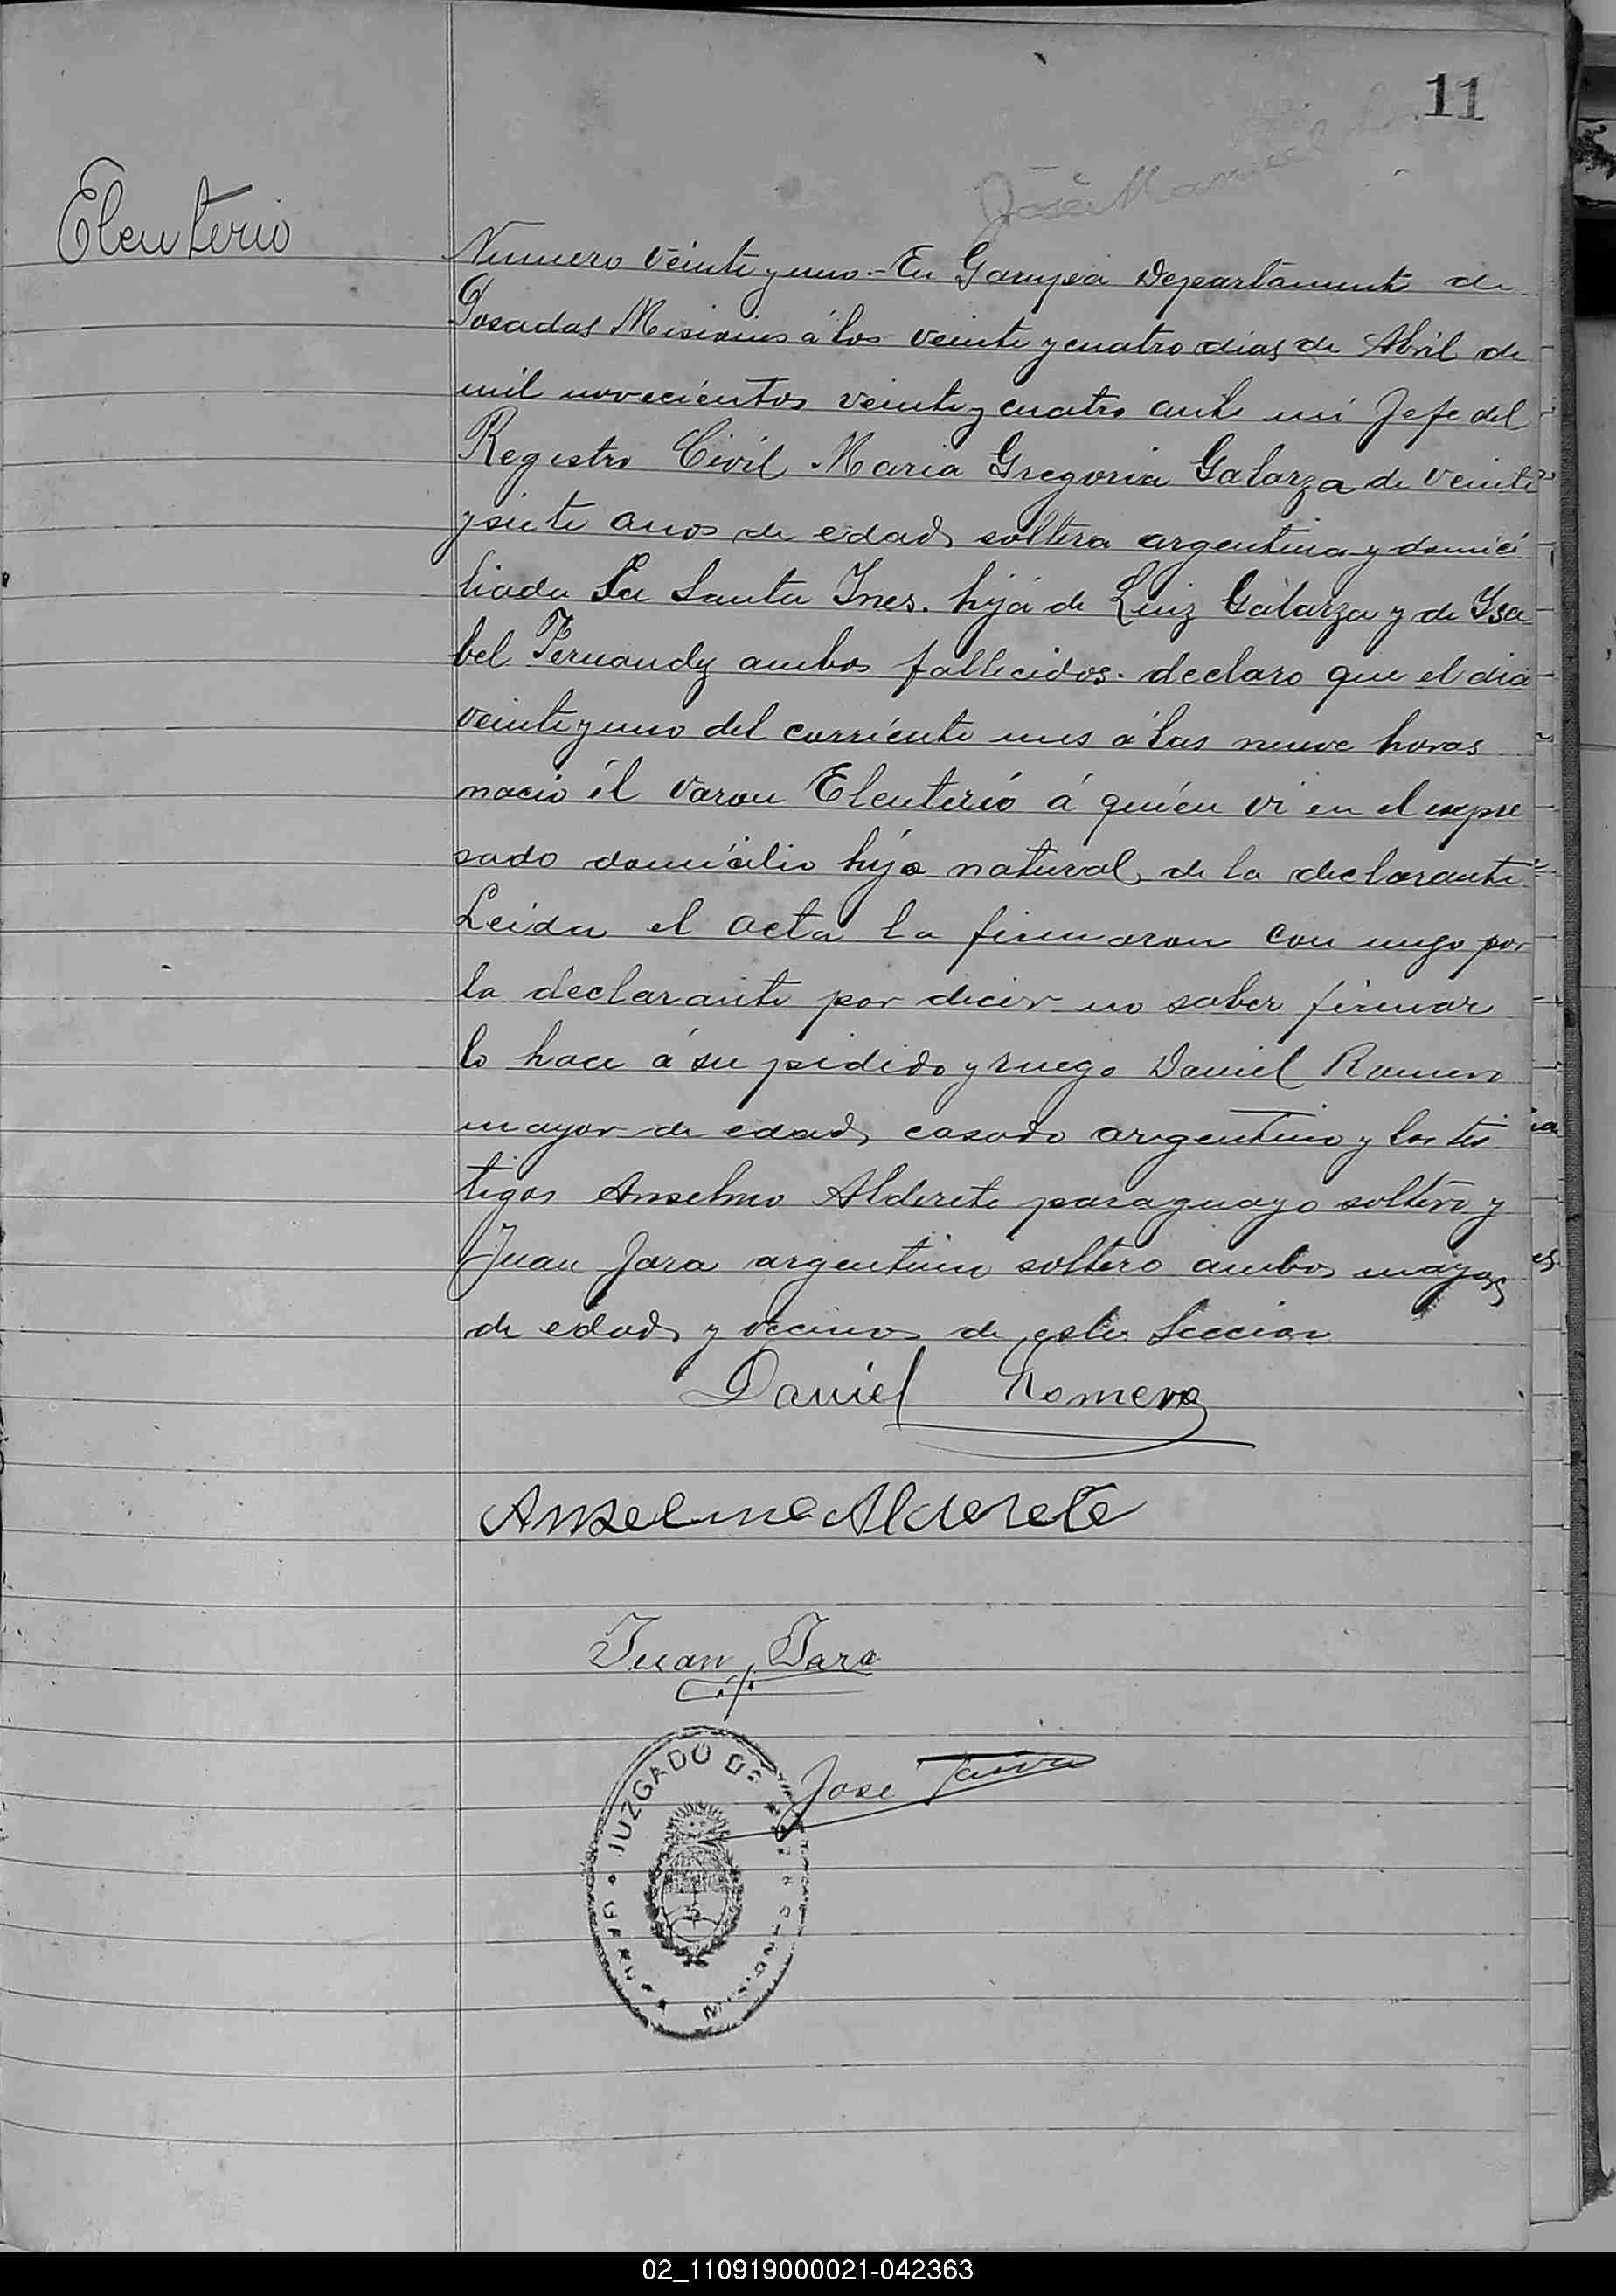 11
José Manuel
Eleuterio
Numero veinte y uno.- En Garupá Departamento de
Posadas Misiones á los veinte y cuatro dias de Abril de
mil novecientos veinte y cuatro ante mi Jefe del
Registro Civil Maria Gregoria Galarza de veinte
y siete anos de edad soltera argentina y domici
liada Sa Santa Ines. hija de Luiz Galarza y de Ysa
bel Fernandz ambos fallecidos. declaro que el dia
veinte y uno del corriente mes á las nueve horas
nació el varon Eleuterió á quien vi en el expre
sado domicilio hijo natural de la declarante
Leida el acta la firmaron con migo por
la declarante por decir no saber firmar
lo hace á su pedido y ruego Daniel Romero
mayor de edad casado argentino y los tes
tigos Anselmo Alderete paraguayo soltero y
Juan Jara argentino soltero ambos mayors
de edad y vecinos de esta Seccion
Daniel Romero
Anselmo Alderete
Juan Jara
Jose Paiva
JUZGADO DE
02_110919000021-042363